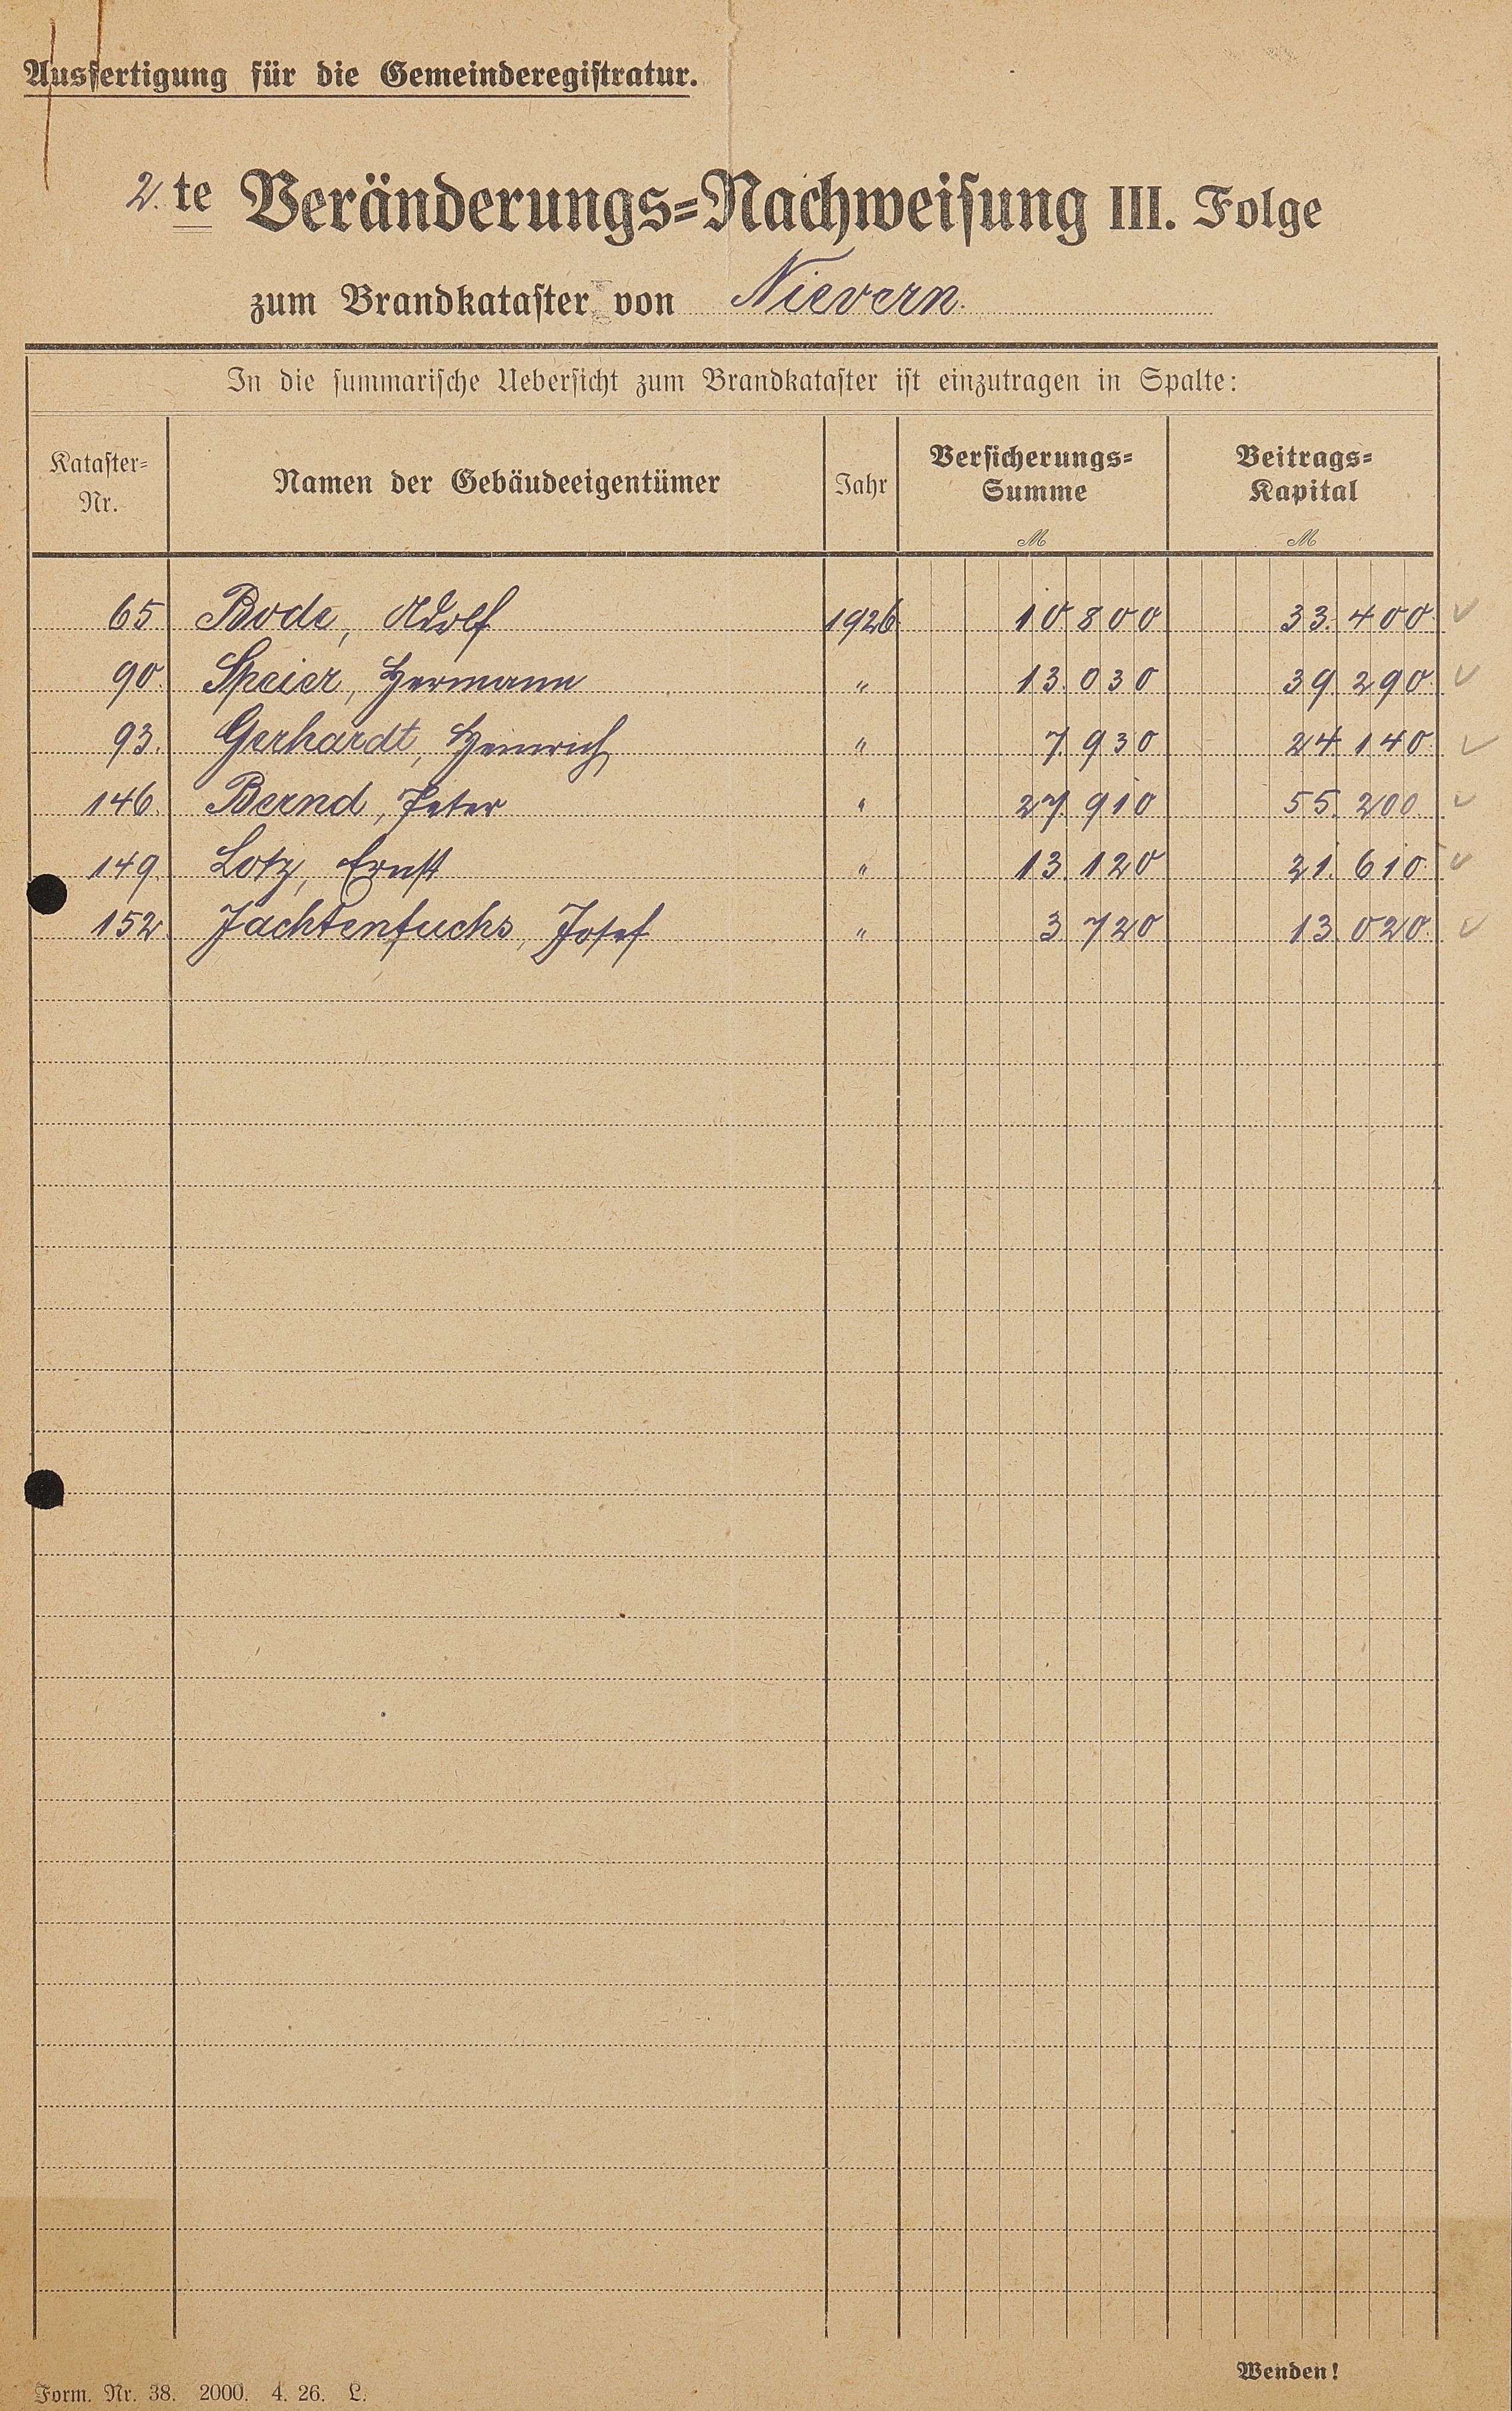 Ausfertigung für die Gemeinderegistratur.
2. te Veränderungs=Nachweisung III. Folge
zum Brandkataster von Nievern.
In die summarische Uebersicht zum Brandkataster ist einzutragen in Spalte:
Kataster=
Nr.
Namen der Gebäudeeigentümer
Jahr
Versicherungs=
Summe
M
Beitrags=
Kapital
M
65 Bode, Adolf 1926 10.800 33.400
90. Speier, Hermann " 13.030 39.290.
93. Gerhardt, Heinrich " 7.930 24.140.
146. Bernd, Peter " 27.910 55.200
149. Lotz, Ernst " 13.120 21.610.
152. Jachtenfuchs, Josef " 3.720 13.020.
Wenden!
Form. Nr. 38. 2000. 4. 26. L.